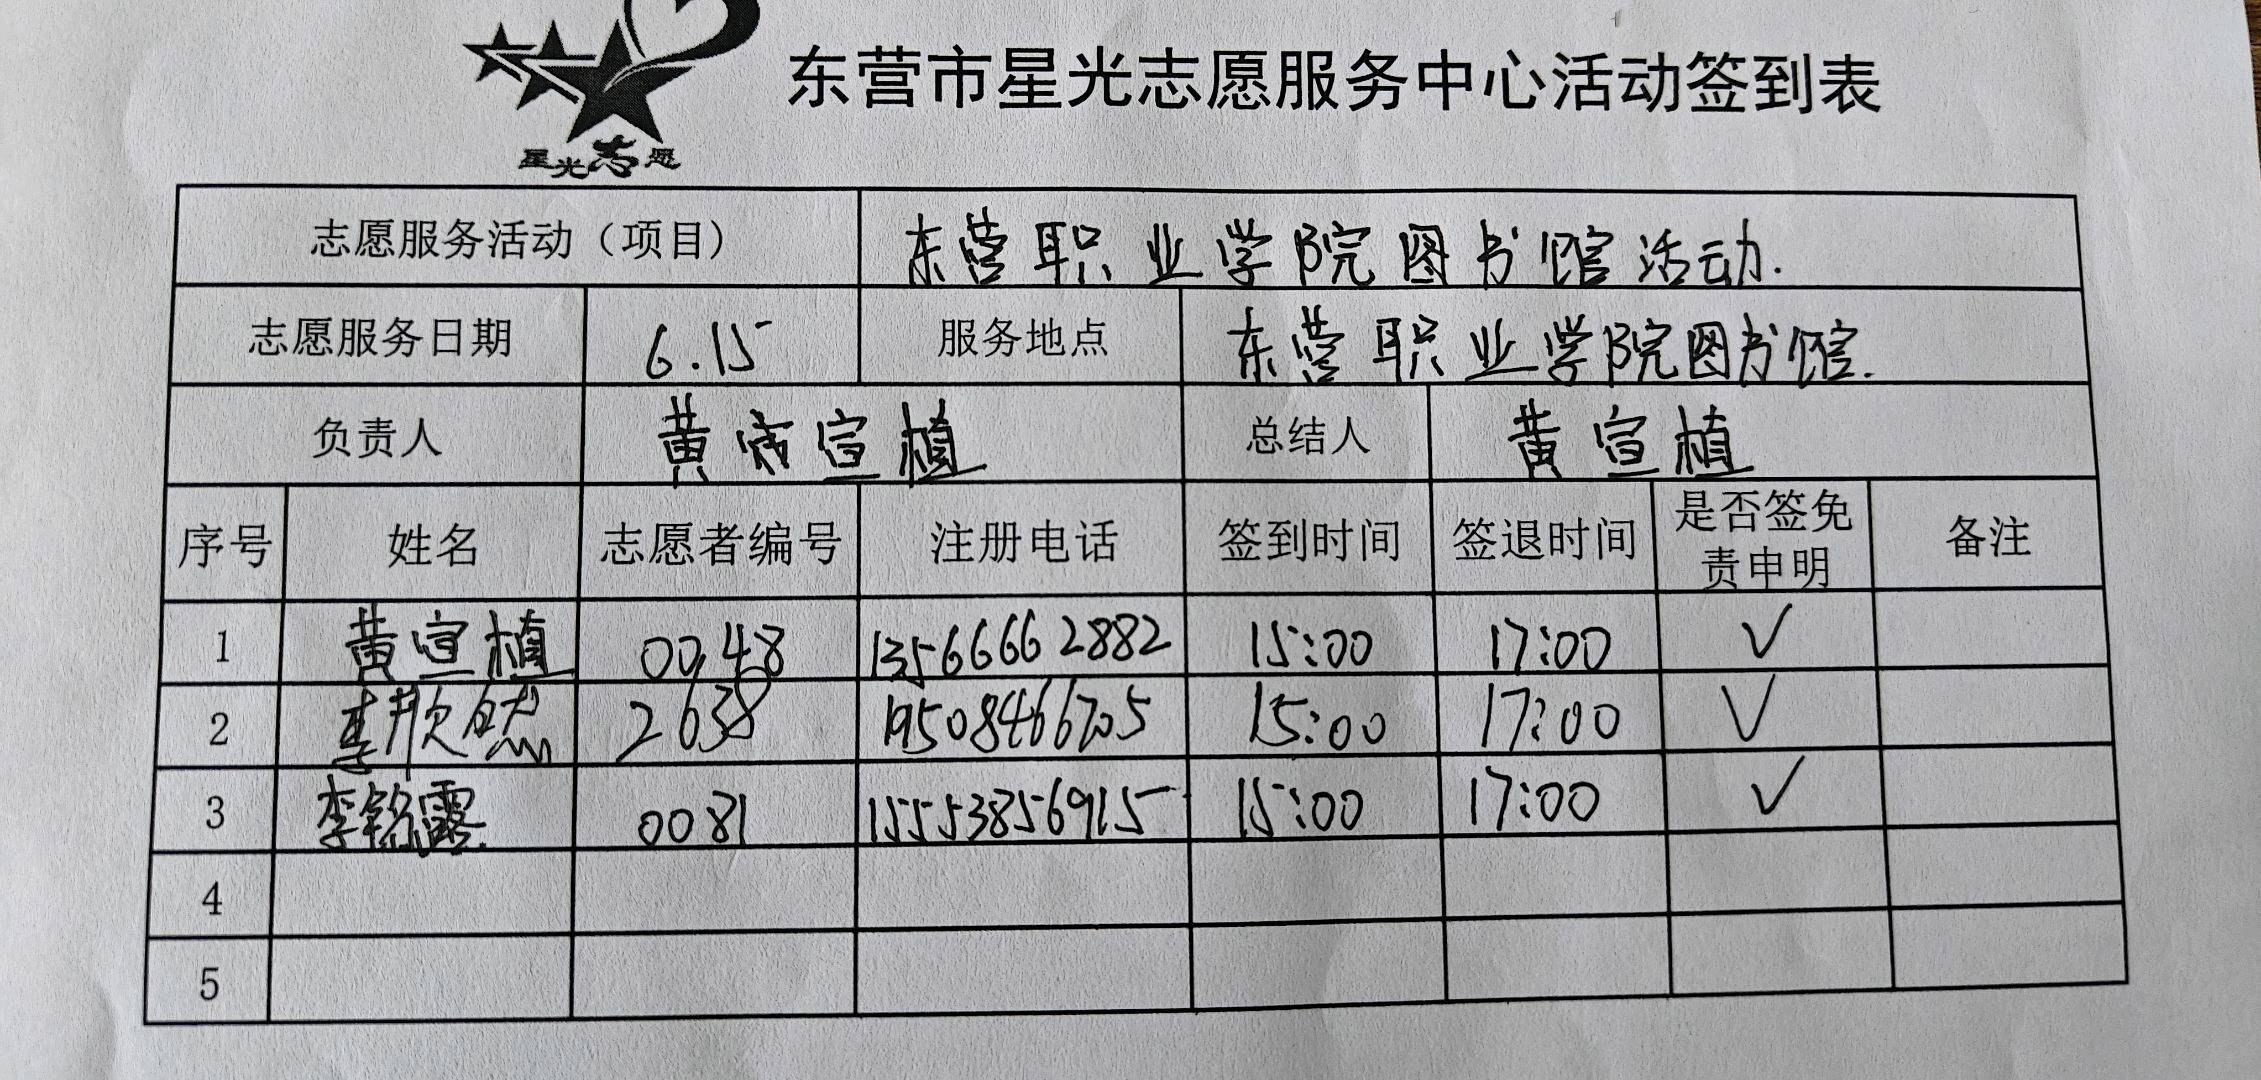 星光志愿
东营市星光志愿服务中心活动签到表
志愿服务活动（项目） 东营职业学院图书馆活动.
志愿服务日期 6.15 服务地点 东营职业学院图书馆.
负责人 黄 宣植 总结人 黄宣植
序号 姓名 志愿者编号 注册电话 签到时间 签退时间 是否签免责申明 备注
1 黄宣植 0048 13566662882 15:00 17:00 ✓
2 李欣然 2638 19508466705 15:00 17:00 ✓
3 李铭露 0081 15553856915 15:00 17:00 ✓
4
5